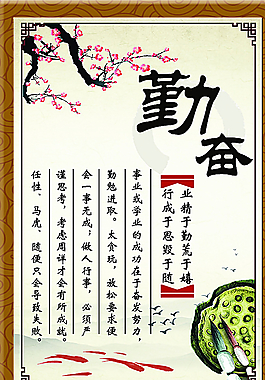 勤奋
业精于勤荒于嬉
行成于思毁于随
事业或学业的成功在于奋发努力,
勤勉进取。太贪玩,放松要求便
会一事无成;做人行事,必须严
谨思考,考虑周详才会有所成就。
任性、马虎、随便只会导致失败。